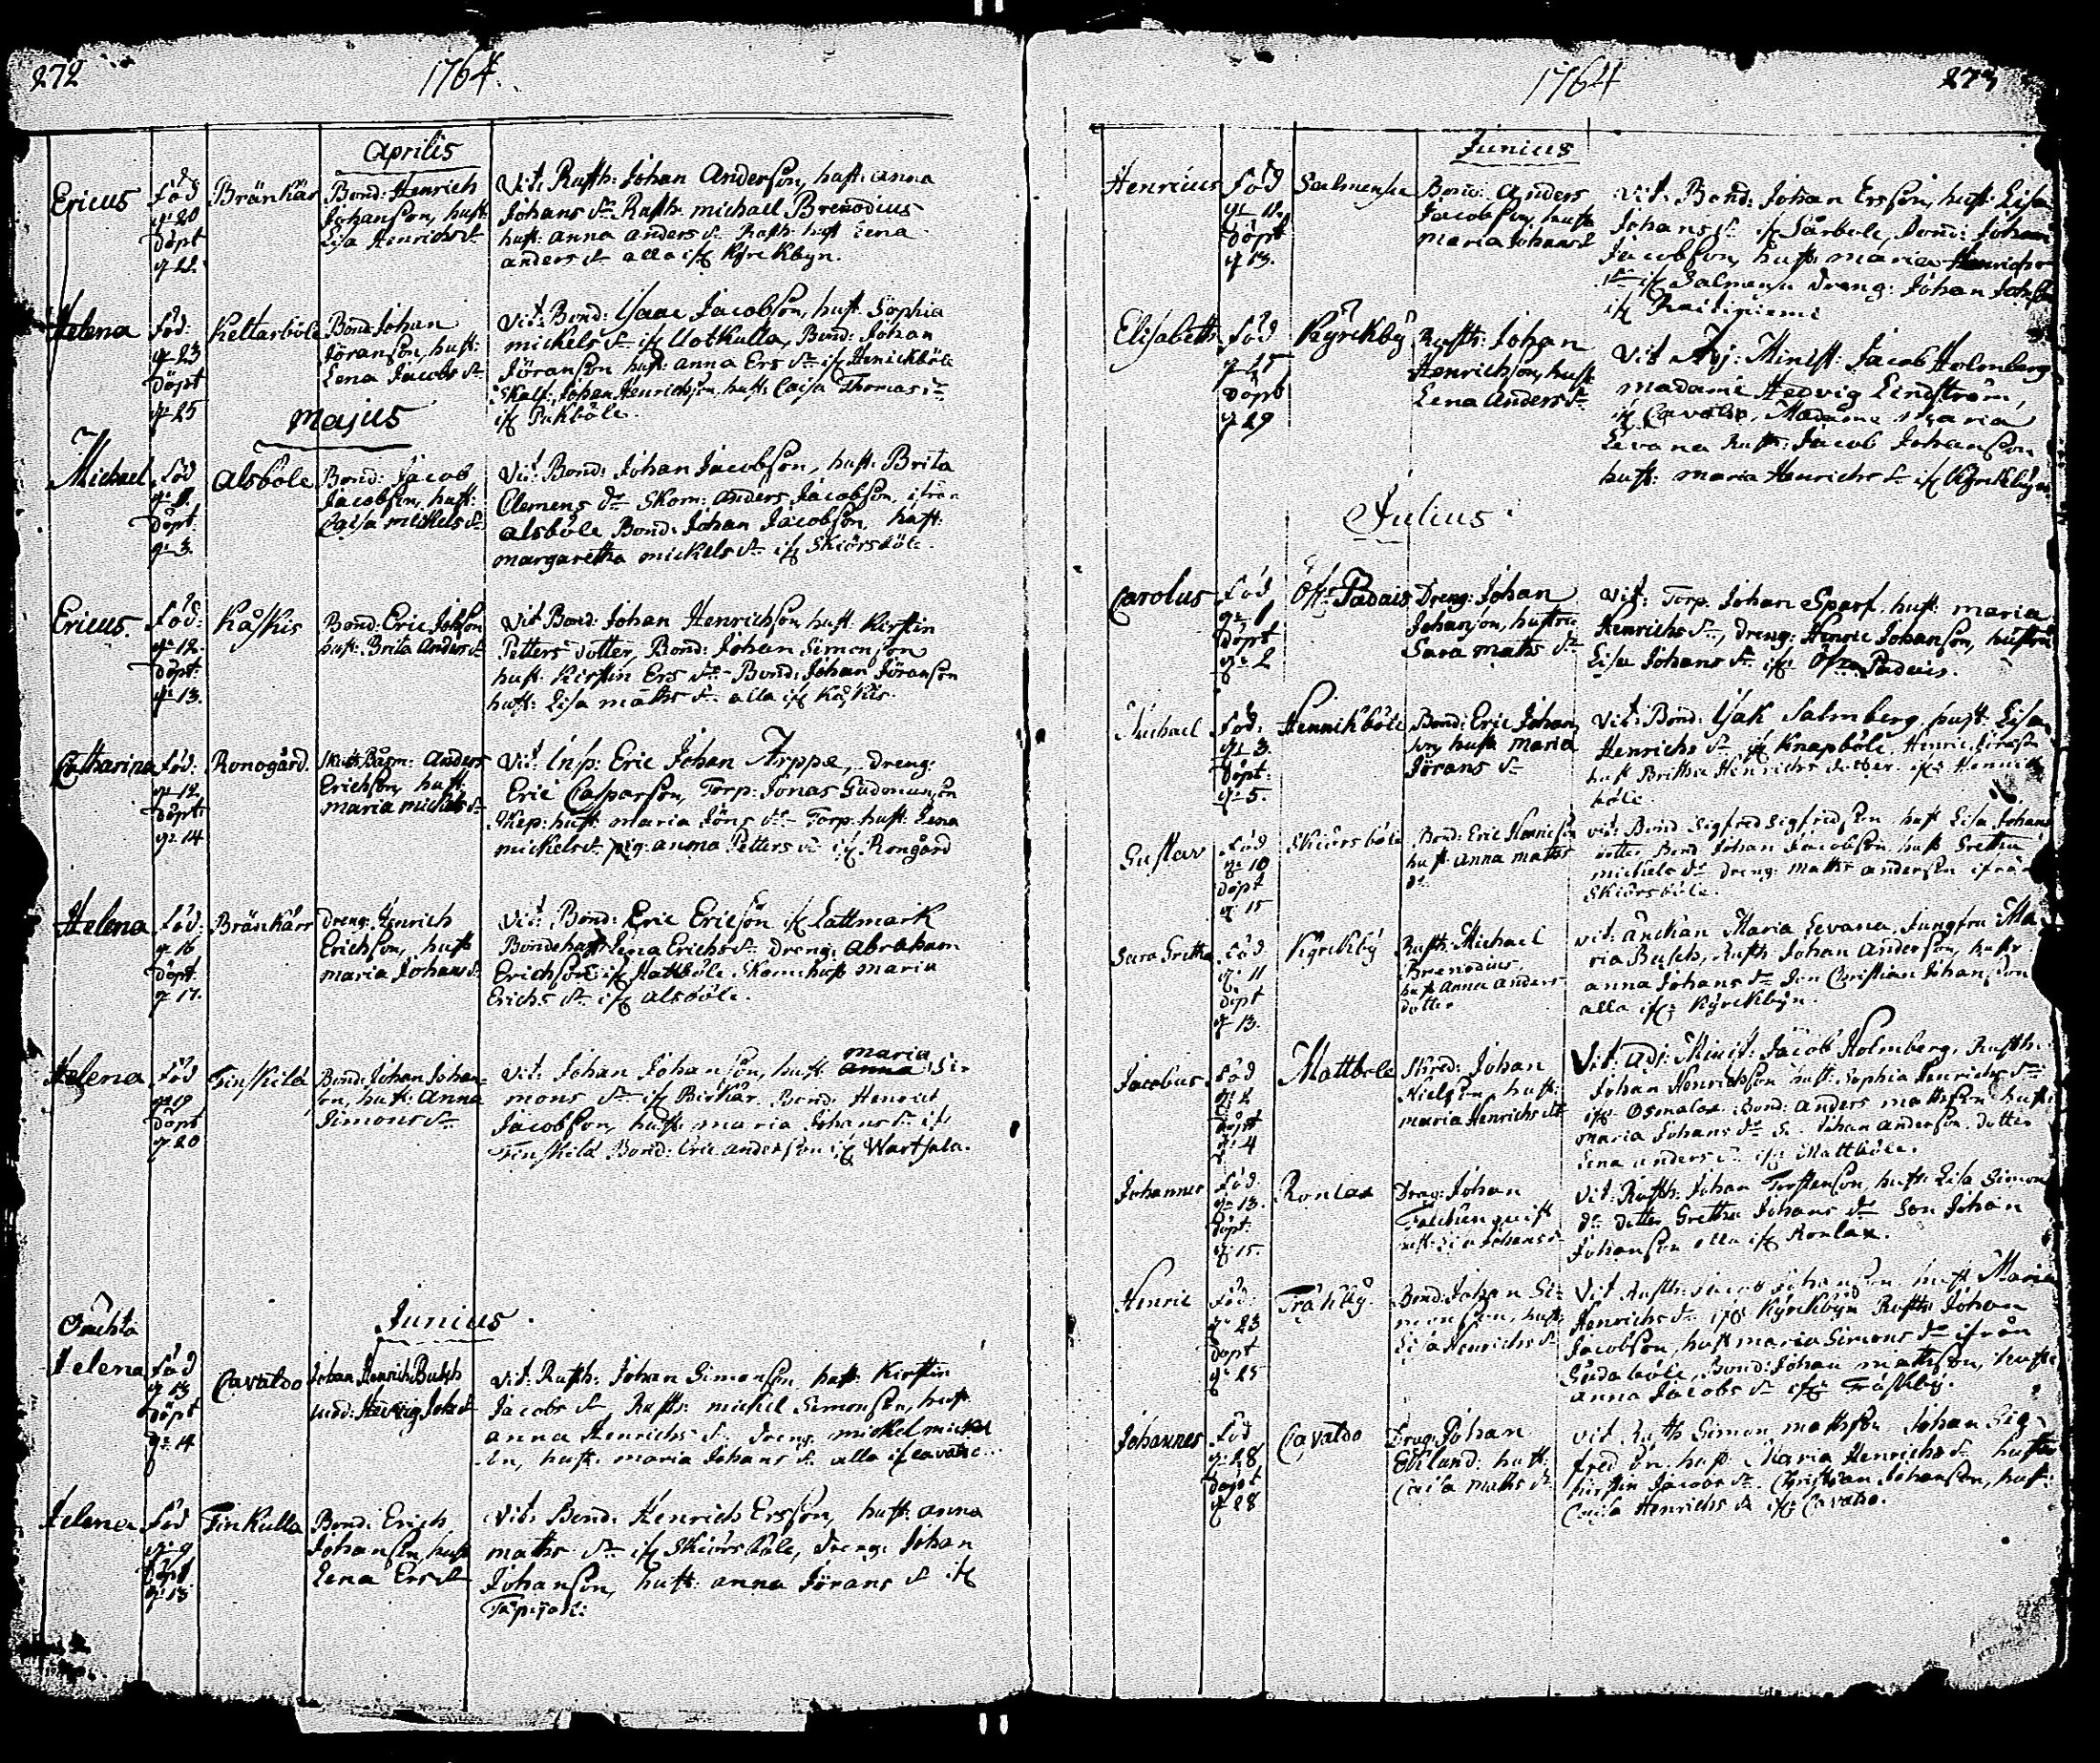 272
1764.
Aprilis
Ericus
Föd
d 20
Döpt
d 22.
Bränkär
Bond: Henrich
Johanson, hust:
Lisa Henrichs dr
Vit: Rusth: Johan Anderson, hust: anna
Johans dr Rusth: michael Brenodius
hust: anna anders dr Rusth: hust Lena
anders dr alla if Kyrckbyn.
Helena
Föd:
d 23
Döpt
d 25
Kettarböle
Bond: Johan
Jöranson, hust:
Lena Jacobs dr
Vit: Bond: Isaac Jacobson, hust: Sophia
mickels dr if Uotkulla, Bond: Johan
Jöranson hust: anna Ers dr if Henickböle
Skalf: Johan Henrichson, hust: Caisa Thomas dr
if Pukböle.
Majus
Michael
Föd
Döpt
d 3.
alsböle
Bond: Jacob
Jacobson, hust:
Caisa mickels dr
Vit: Bond: Johan Jacobson, hust: Brita
Clemens dr Skom: anders Jacobson, ifrån
alsböle Bond: Johan Jacobson, hust:
margaretha mickels dr if Skiörsböle.
Ericus.
Föd:
d 12.
Döpt:
d 13.
Kåskis
Bond: Eric Johson
hust: Brita Anders dr
Vit Bond: Johan Henrichson hust: Kirstin
Petters dotter, Bond: Johan Simonson
hust: Kirstin Ers dr Bond: Johan Jöranson
hust: Lisa maths dr alla if Kåskis.
Catharina
Föd:
d 12.
Döpt:
d 14
Ronogård
Anders
Erichson, hust:
maria mickels dr
Vit: Insp: Eric Johan Arppe, Dreng:
Eric Casparson, Torp: Jonas Gudmunson
Skep: hust: maria Jöns dr Torp: hust: Lena
mickels dr pig: anna Petters dr if Rongård
Helena
Föd:
d 16
Döpt:
d 17.
Bränkärr
Dreng: Henrich
Erichson, hust
maria Johans dr
Vit: Bond: Eric Ericson if Lattmark
Bondehust: Lena Erichs dr Dreng: Abraham
Erichson if Mattböle. Skom: hust maria
Erichs dr if alsböle.
Helena
Föd
d 19
Döpt
d 20
Finskilä
Bond: Johan Johan-
son, hust: Anna
Simons dr
maria
Vit: Johan Johanson, hust: anna Si-
mons dr if Birkär. Bond: Henrich
Jacobson, hust: maria Johans dr if
Finskilä Bond: Eric anderson if Wartsala.
Junius
Oächta
Helena
Föd
d 13
Döpt
d 14
Cavaldo
Johan Henrich Busch
Hedvig Johs dr
Vit: Rusth: Johan Simonson hust: Kirstin
Jacobs dr Rusth: mickel Simonson, hust
anna Henrichs dr Dreng mickel mickel
son, hust: maria Johans dr alla if cavaldo.
Helena
Föd
d 9
Döpt
d 13
Finkulla
Bond: Erich
Johanson, hust
Lena Ers dr
Vit: Bond: Henrich Ersson, hust: anna
maths dr if Skiörsböle, Dreng: Johan
Johanson, hust: anna Jörans dr if
1764
273
Junius
Henricus
Föd
d 12.
Döpt
d 13.
Salmensu
Bond: Anders
Jacobson, hust
maria Johans dr
Vit: Bond: Johan Ersson, hust: Lisa
Johans dr if Särböle, Bond: Johan
Jacobson, hust: maria Henrichs
dr if Salmensu Dreng: Johan Johson
if Raitiniemi
Elisabeth
Föd
d 25
Döpt
d 29
Kyrckby
Rusth: Johan
Henrichson, hust
Lena Anders dr
Vit Adj: Minist: Jacob Holmberg
madame Hedvig Lindström,
if Cavaldo, Madame Maria
Levana Rusth: Jacob Johanson
hust: maria Henrichs dr if Kyrckbyn
Julius.
Carolus
Föd
d 1
Döpt
d 2
Öfre Padais
Dreng: Johan
Johanson, hustru
Sara maths dr
Vit: Torp. Johan Sparf. hust: maria
Henrichs dr, Dreng: Henric Johanson, hustru
Lisa Johans dr if Öfre Padais.
Michael
Föd:
d 3
Döpt:
d 5.
Hennikböle
Bond: Eric Johan
son, hust maria
Jörans dr
Vit: Bond: Isak Salmberg, hust: Lisa
Henrichs dr if Knapböle, Henric Jöranson
hust Britha Henrichs dotter if: Hennick
böle.
Gustav
Föd
d 10
Döpt
d 15
Skiörsböle
Bond: Eric Henricson
hust anna maths
dr
vit: Bond Sigfred Sigfredson hust Lisa Johans
dotter Bond Johan Jacobson hust Gretha
mickels dr Dreng: Maths anderson ifrån
Skiörsböle.
Sara Gretha
Föd
d 11
Döpt
d 13.
Kyrckby
Rusth: Michael
Brenodius,
hust Anna anders
dotter
vit: änckan Maria Levana, Jungfru Ma-
ria Busch, Rusth: Johan Anderson, hustr
anna Johans dr Christian Johanson
alla if: Kyrckbyn.
Jacobus
Föd
d 2
Döpt
d 4
Mattböle
Skred: Johan
Nielson hust:
maria Henrichs dr
Vit: Adj: Minist: Jacob Holmberg. Rusth:
Johan Henrichson hust: Sophia Henrichs dr
if: Osmalax. Bond: anders mattson hust:
maria Johans dr Johan anderson. Dotter
Lena anders dr if: Mattböle.
Johannes
Föd.
d 13.
Döpt.
d 15.
Ronlax
Drag: Johan
Vit: Rusth: Johan Torstenson, hust: Lisa Simons
dr dotter Gretha Johans dr Son Johan
Johanson alla if Ronlax.
Henric
Föd.
d 23
Döpt
d 25
Träskby
Bond: Johan Si-
monson, hust:
Lisa Henrichs dr
Vit Rusth: Jacob Johanson hust Maria
Henrichs dr if: Kyrckbyn Rusth: Johan
Jacobson, hust maria Simons dr ifrån
Gudaböle, Bond: Johan mathson, hust:
anna Jacobs dr if: Träskby.
Johannes
Föd
d 28
Döpt
d 28
Cavaldo
Drag: Johan
Edlund: hust:
Caisa maths dr
vit Rusth Simon mathson Johan Sig-
fredson. hust: Maria Henrichs dr hustru
Kirstin Jacobs dr. Christian Johanson, hust:
Caisa Henrichs dr if: Cavaldo.